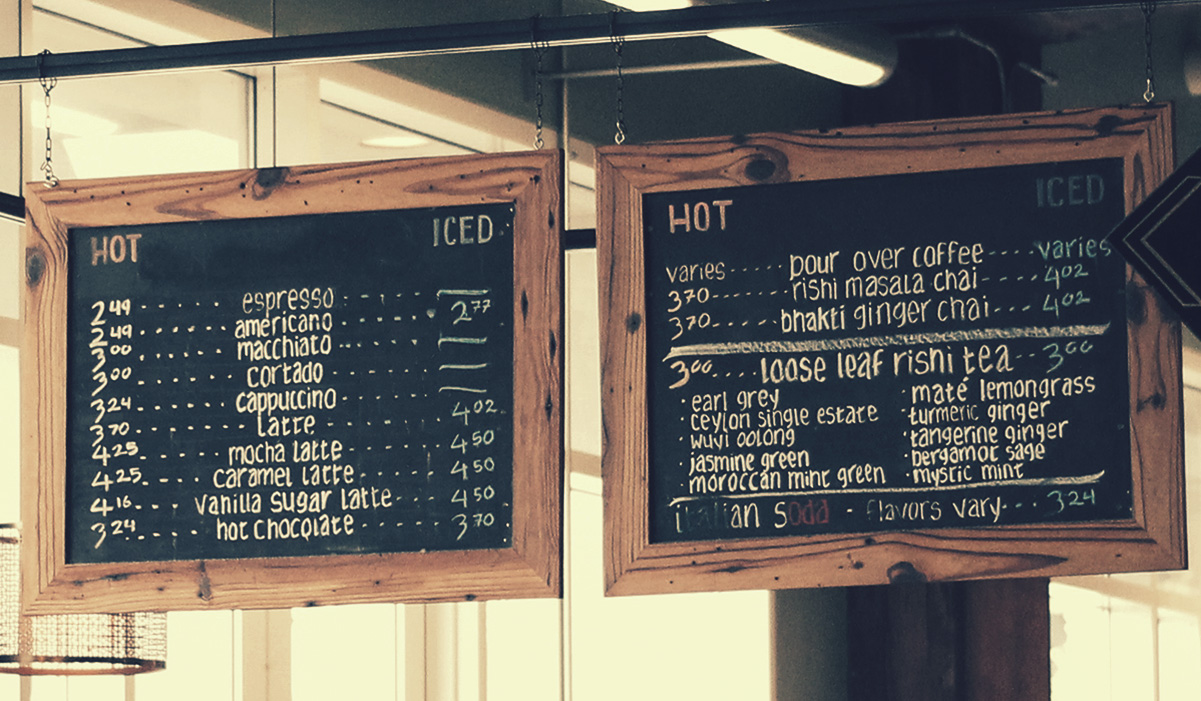 HOT ICED
2.49 ...... espresso ...... —
2.49 ...... americano ...... 2.77
3.00 ...... macchiato ...... —
3.00 ...... cortado ...... —
3.24 ...... cappuccino ...... —
3.70 ...... latte ...... 4.02
4.25 ..... mocha latte ..... 4.50
4.25 .... caramel latte .... 4.50
4.16 ... vanilla sugar latte ... 4.50
3.24 .... hot chocolate ..... 3.70
HOT ICED
varies ..... pour over coffee .... varies
3.70 ...... rishi masala chai .... 4.02
3.70 ..... bhakti ginger chai ... 4.02
3.00 .... loose leaf rishi tea .. 3.00
· earl grey
· ceylon single estate
· wuyi oolong
· jasmine green
· moroccan mint green
· maté lemongrass
· turmeric ginger
· tangerine ginger
· bergamot sage
· mystic mint
italian soda - flavors vary ... 3.24